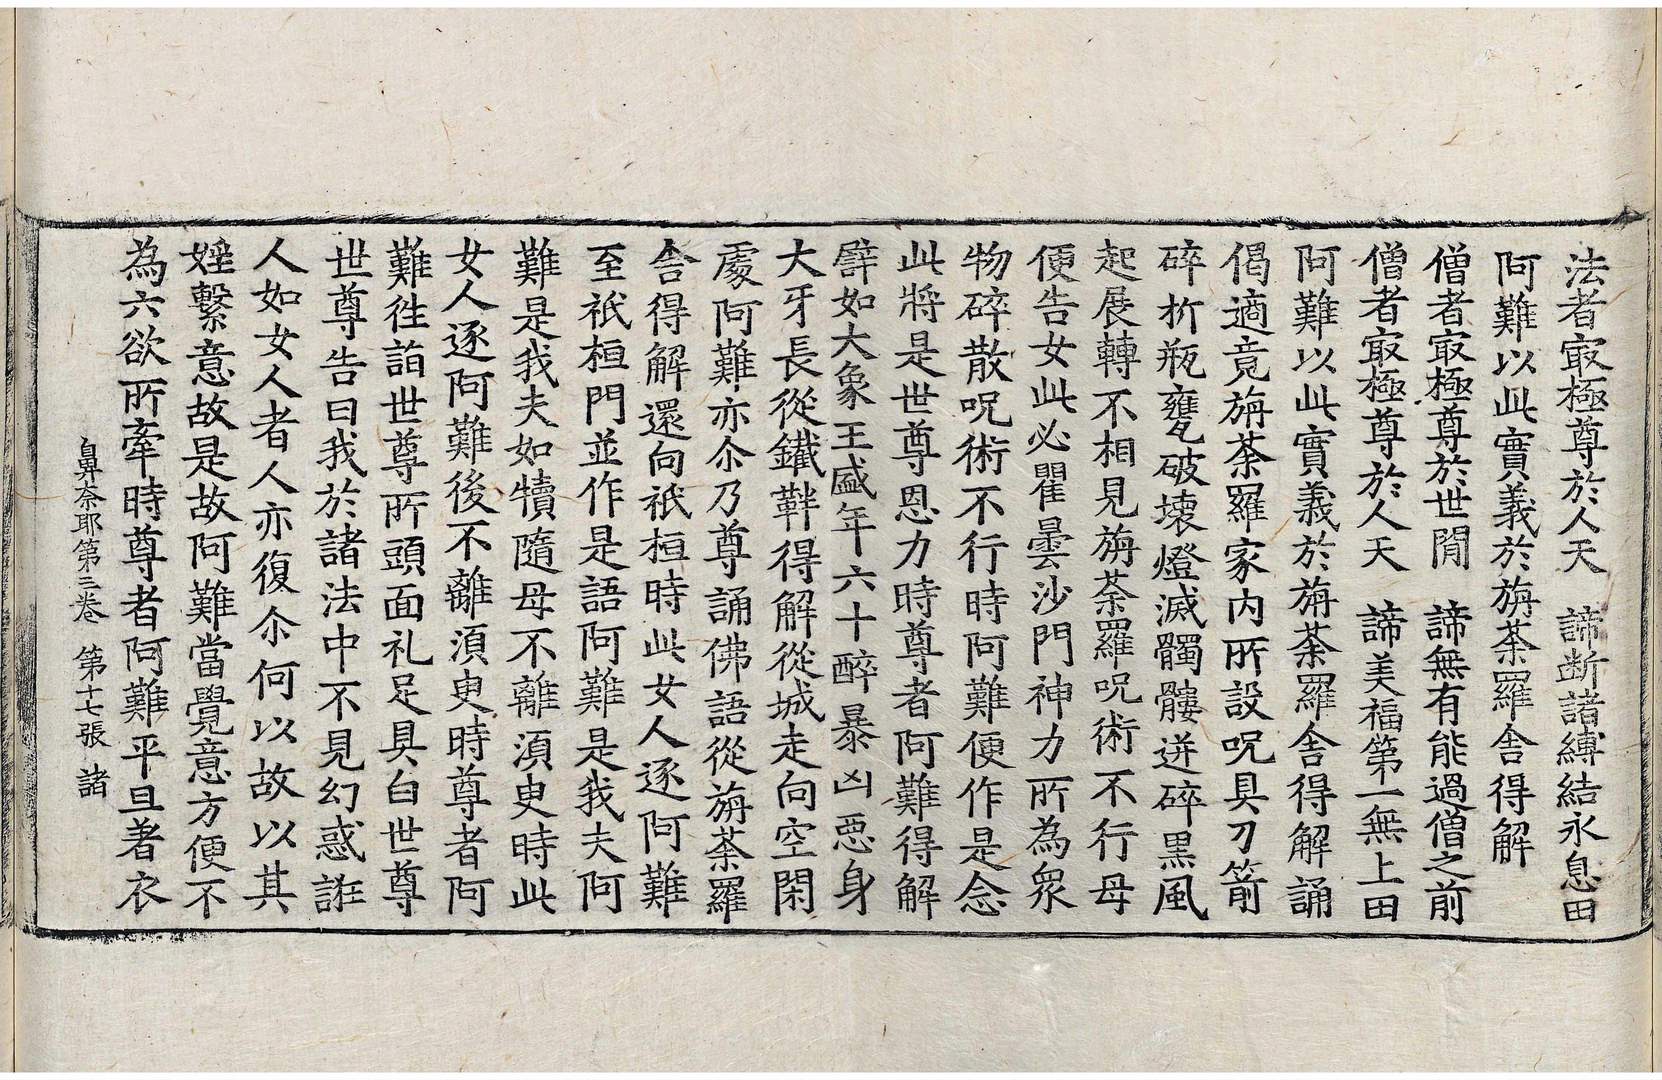 法者㝡極尊於人天　諦断諸縛結永息田
阿難以此實義於旃荼羅舎得解
僧者㝡極尊於世閒　諦無有能過僧之前
僧者㝡極尊於人天　諦美福第一無上田
阿難以此實義於旃荼羅舎得解誦
偈適竟旃荼羅家内所設呪具刀箭
碎折瓶甕破壊燈滅髑髏迸碎黒風
起展轉不相見旃荼羅呪術不行母
便告女此必瞿曇沙門神力所為衆
物碎散呪術不行時阿難便作是念
此將是世尊恩力時尊者阿難得解
譬如大象王盛年六十醉暴凶惡身
大牙長從鐵靽得解從城走向空閑
處阿難亦尒乃尊誦佛語從旃荼羅
舎得解還向祇桓時此女人逐阿難
至祇桓門並作是語阿難是我夫阿
難是我夫如犢隨母不離須臾時此
女人逐阿難後不離須臾時尊者阿
難徃詣世尊所頭面礼足具白世尊
世尊告曰我於諸法中不見幻惑誑
人如女人者人亦復尒何以故以其
婬繫意故是故阿難當覺意方便不
為六欲所牽時尊者阿難平旦著衣
鼻奈耶第三卷　第十七張　諸